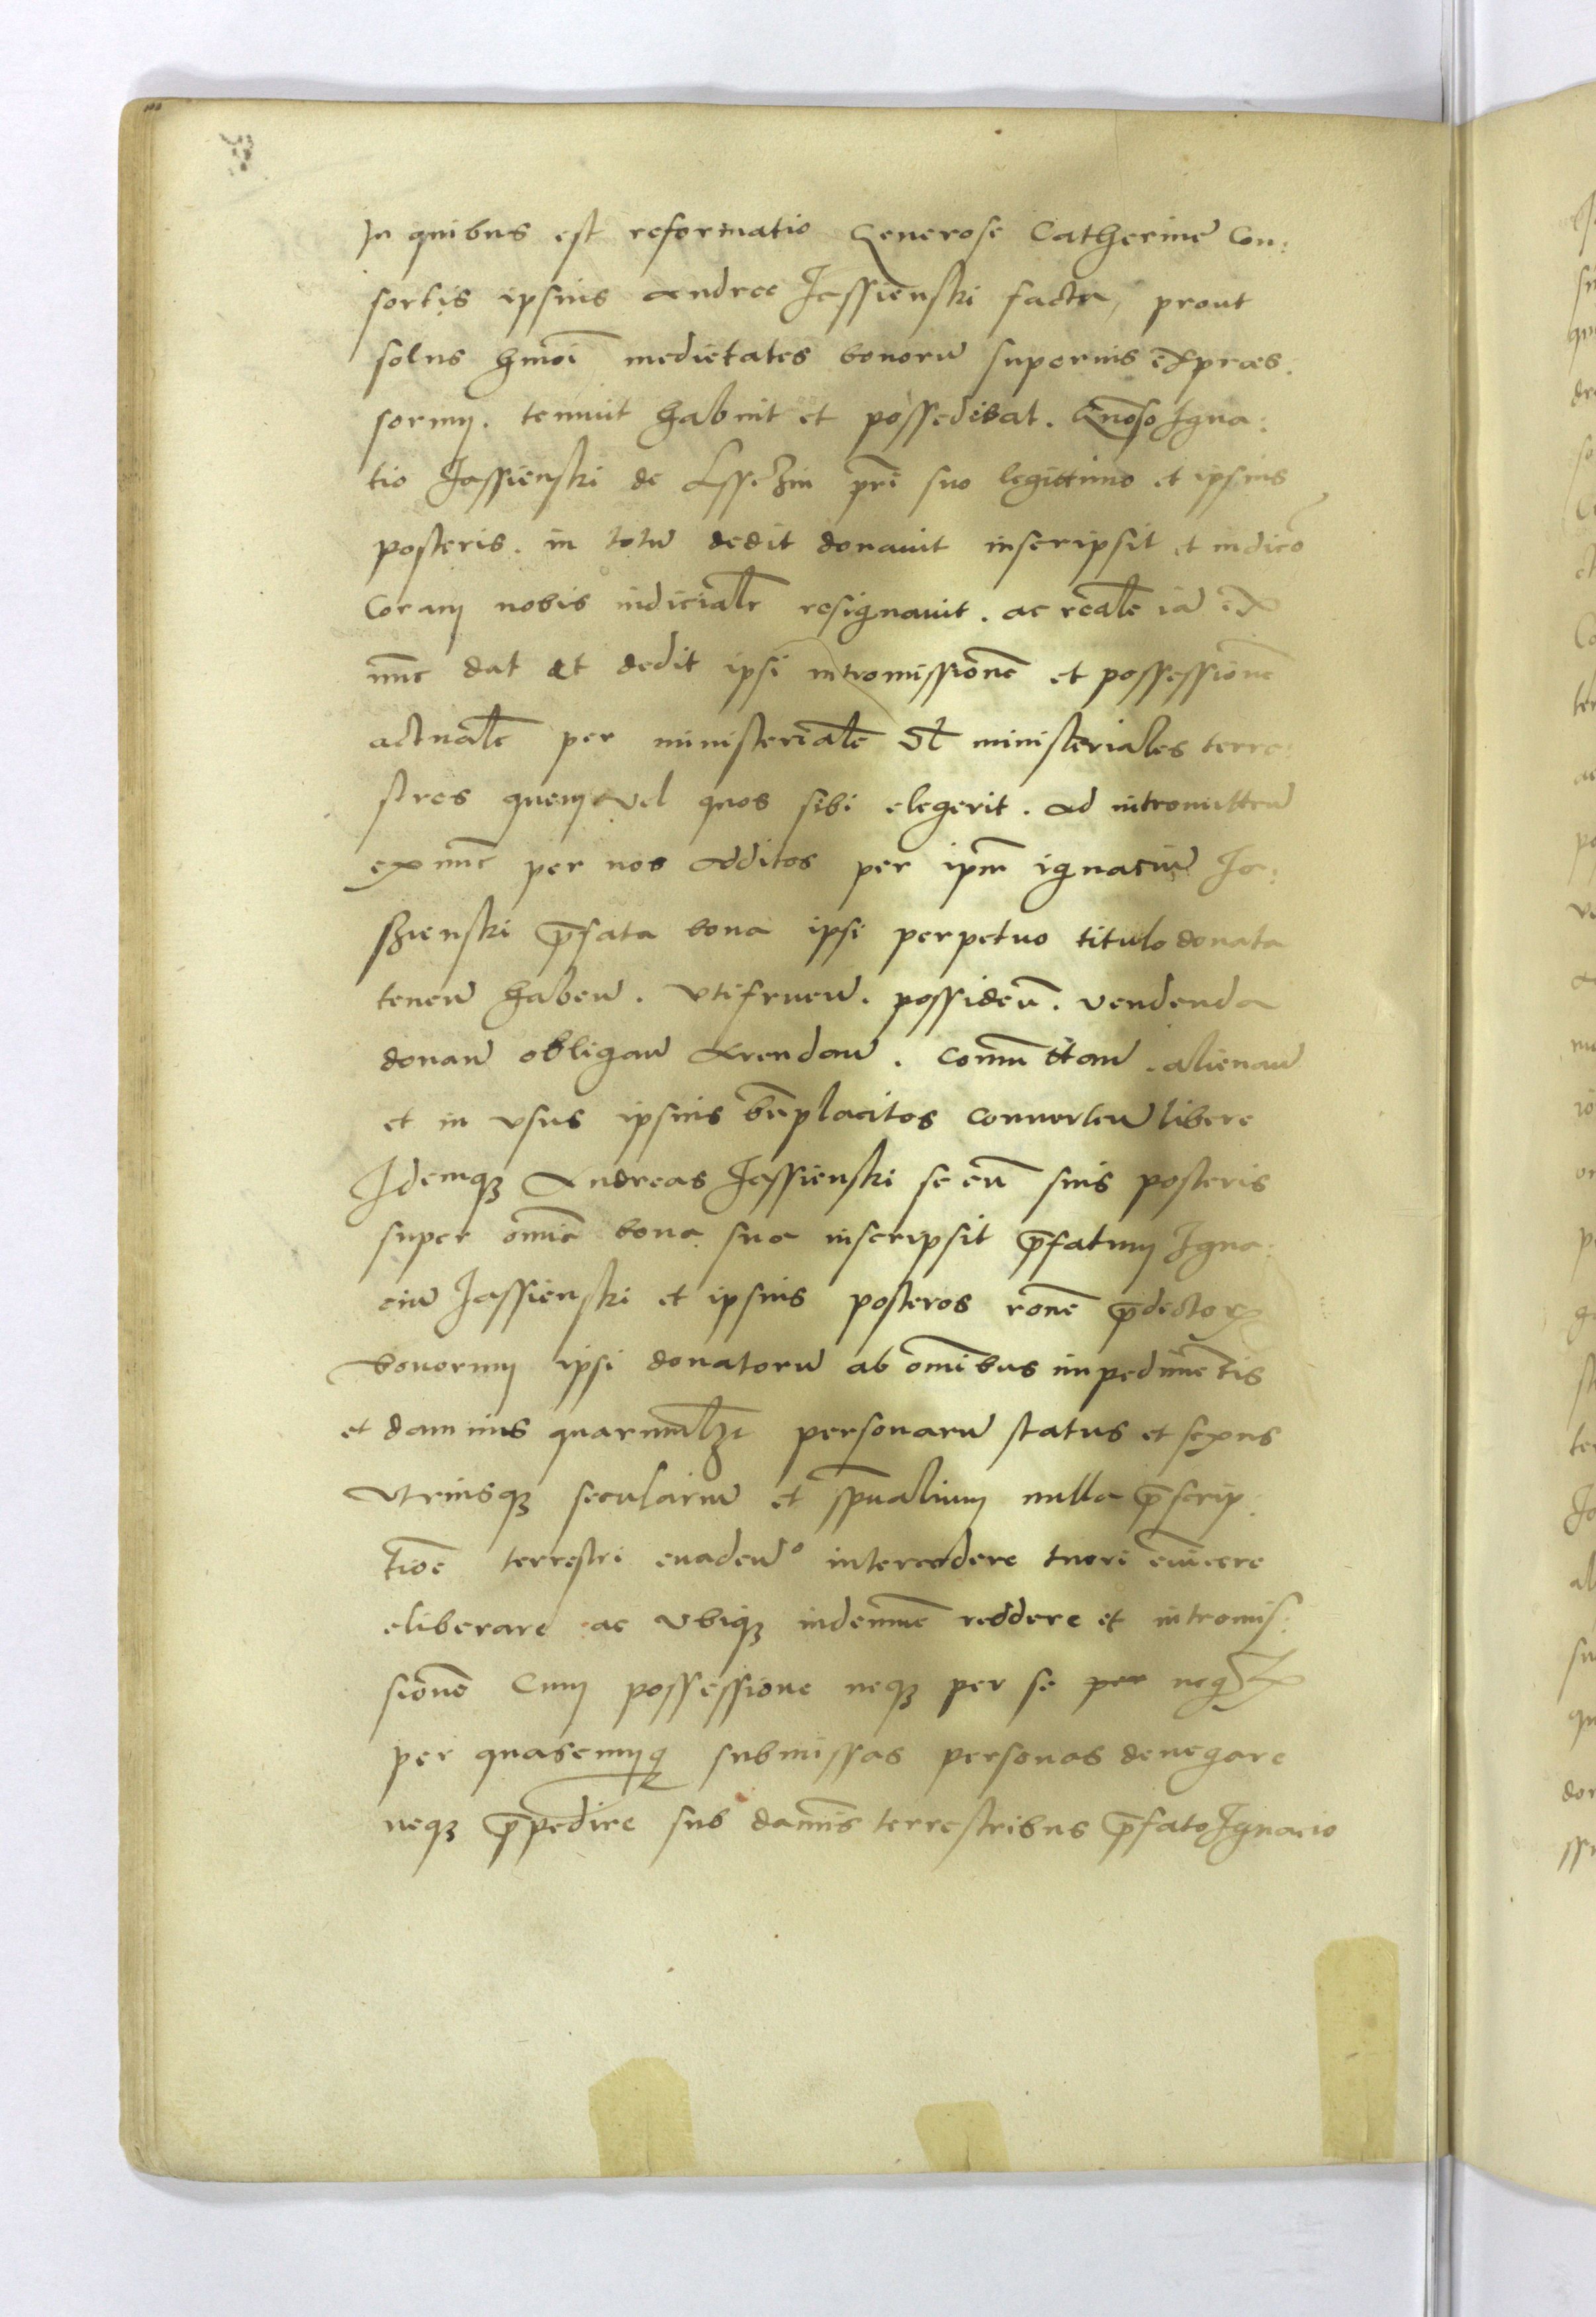 In quibus est reformatio Generose Catherine Con:
sortis ipsius Andree Jassienski facta, prout
solus hmōi medietates bonorū superius expraes:
sorum. tenuit habuit et possedibat. Gnōso Igna:
tio Jassienski de prī suo legittimo et ipsius
posteris. in totū dedit donavit inscripsit et indico
Coram nobis iudicialr resignavit. ac realr iā ex
nūc dat et dedit ipsi intromissionē et possessionē
actualē per ministerialē vl ministeriales terre:
stres quem vel quos sibi elegerit. Ad intromitteñ
ex nūc per nos Additos per ipm̄ ignaciū Ja:
szienski p̄fata bona ipsi perpetuo titulo donata
teneñ habeñ. Utifrueñ. possideñ. vendenda
donañ obligañ Arendañ. comūttañ. alienañ
et in usus ipsius bn̄placitos converteñ libere
Idemqz Andreas Jassienski se cū suis posteris
super omīa bona sua inscripsit p̄fatum Igna:
ciū Jassienski et ipsius posteros ronē p̄dictorz
bonorum ipsi donatorū ab omībus impedimētis
et damnis quarumlzt personarū status et sexus
Utriusqz seculariū et spūalium nulla p̄scrip:
tioē terrestri evadeñº intercedere tueri evīcere
eliberare ac Ubiqz indemnē reddere et intromis:
sionē Cum possessione neqz per se per neqz
per quascumqz submissas personas denegare
neqz p̄pedire sub damnīs terrestribus p̄fato Ignacio